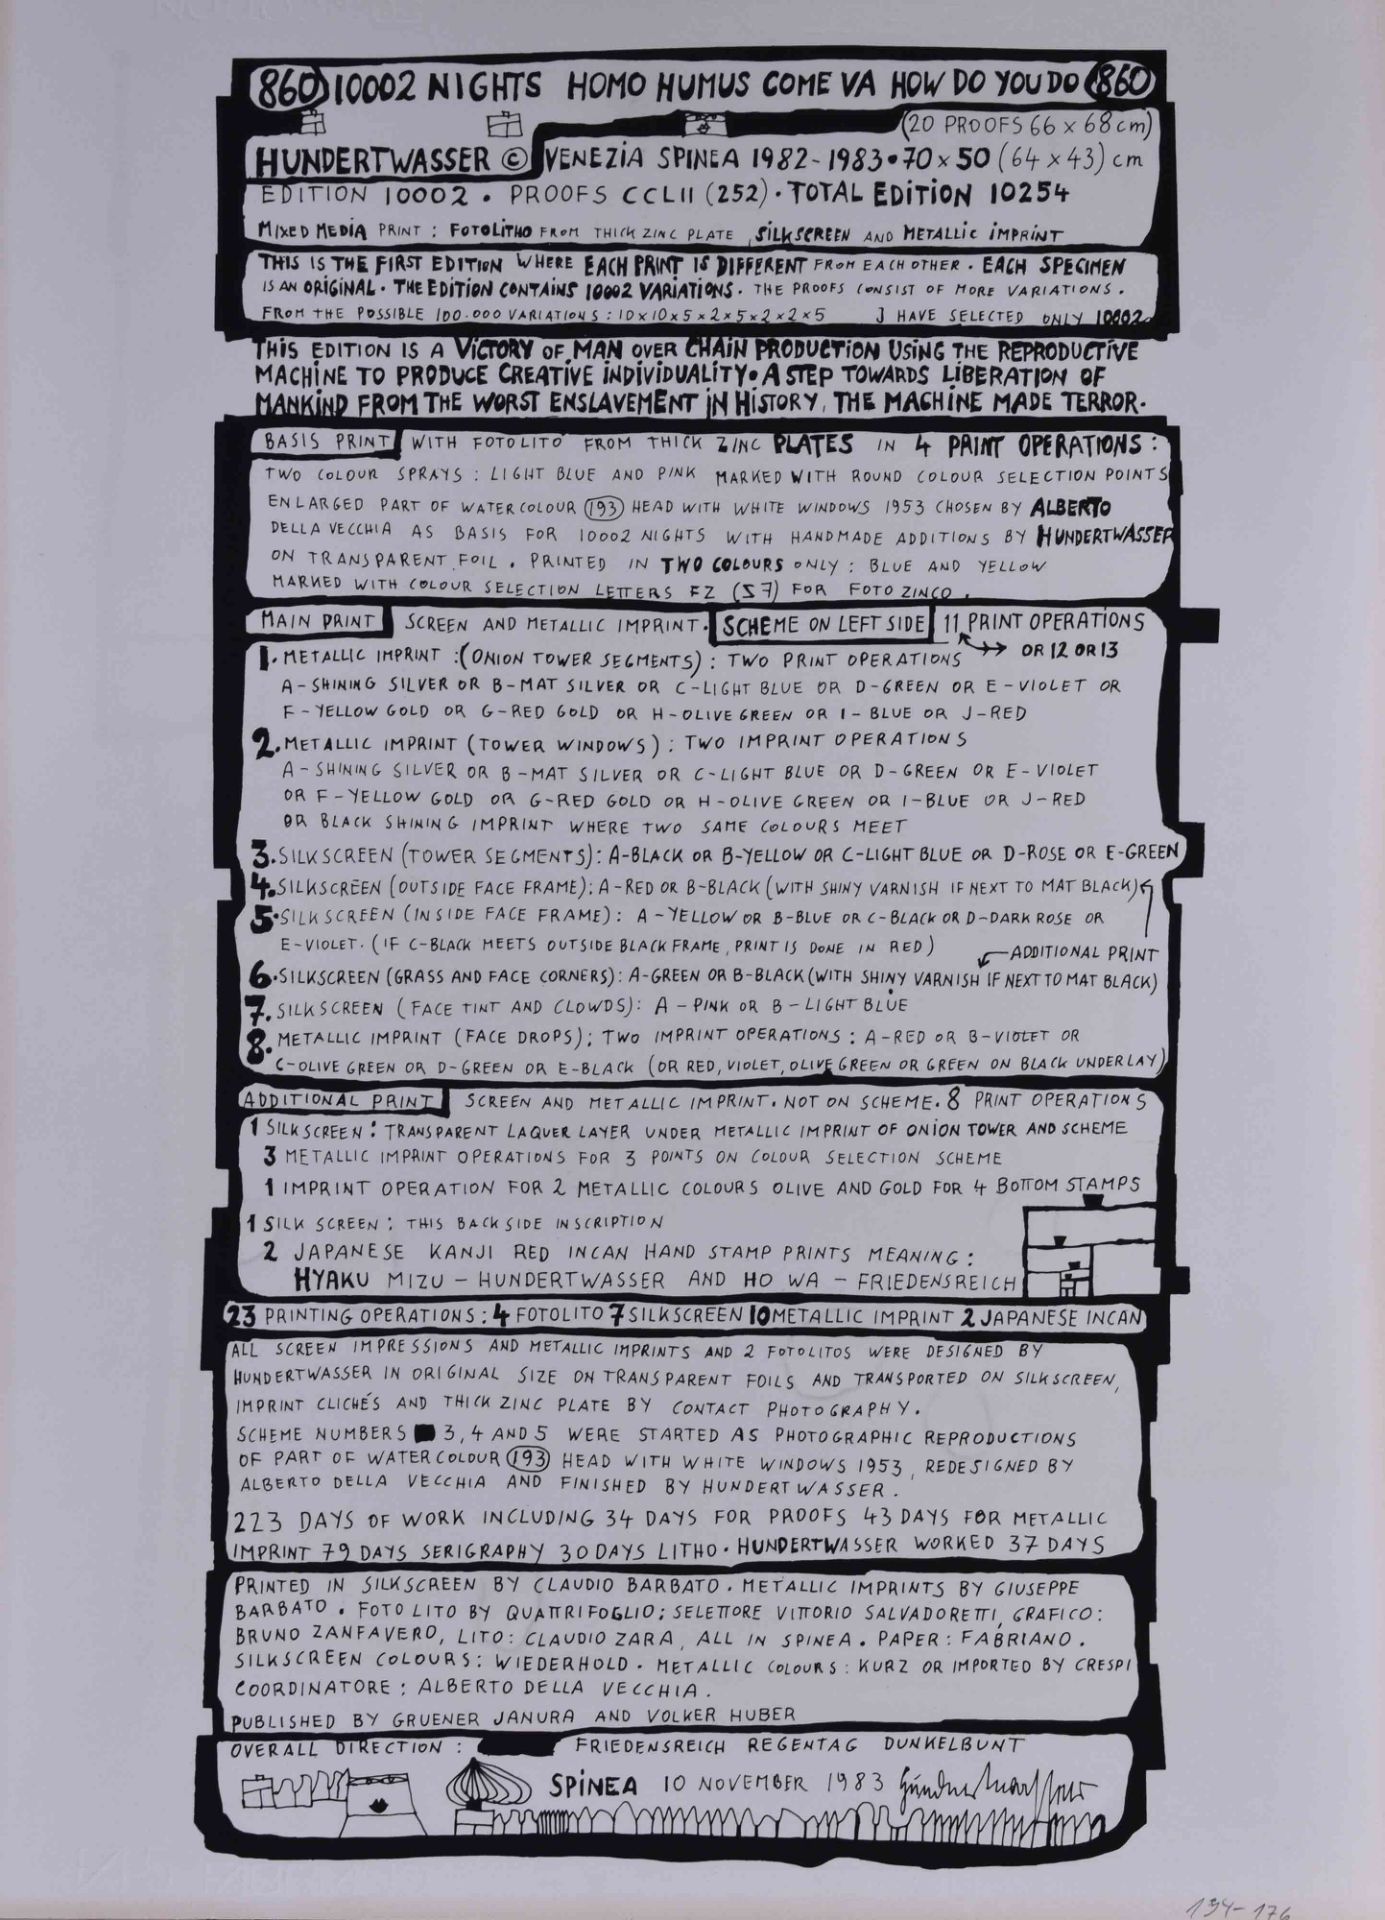 860 10002 NIGHTS HOMO HUMUS COME VA HOW DO YOU DO 860
(20 PROOFS 66 x 68 cm)
HUNDERTWASSER © VENEZIA SPINEA 1982-1983 • 70 x 50 (64 x 43) cm
EDITION 10002 • PROOFS CCLII (252) • TOTAL EDITION 10254
MIXED MEDIA PRINT : FOTOLITHO FROM THICK ZINC PLATE, SILKSCREEN AND METALLIC IMPRINT
THIS IS THE FIRST EDITION WHERE EACH PRINT IS DIFFERENT FROM EACH OTHER • EACH SPECIMEN
IS AN ORIGINAL • THE EDITION CONTAINS 10002 VARIATIONS • THE PROOFS CONSIST OF MORE VARIATIONS .
FROM THE POSSIBLE 100.000 VARIATIONS : 10 x 10 x 5 x 2 x 5 x 2 x 2 x 5 J HAVE SELECTED ONLY 10002
THIS EDITION IS A VICTORY OF MAN OVER CHAIN PRODUCTION USING THE REPRODUCTIVE
MACHINE TO PRODUCE CREATIVE INDIVIDUALITY • A STEP TOWARDS LIBERATION OF
MANKIND FROM THE WORST ENSLAVEMENT IN HISTORY, THE MACHINE MADE TERROR.
BASIS PRINT WITH FOTOLITO FROM THICK ZINC PLATES IN 4 PRINT OPERATIONS :
TWO COLOUR SPRAYS : LIGHT BLUE AND PINK MARKED WITH ROUND COLOUR SELECTION POINTS
ENLARGED PART OF WATERCOLOUR 193 HEAD WITH WHITE WINDOWS 1953 CHOSEN BY ALBERTO
DELLA VECCHIA AS BASIS FOR 10002 NIGHTS WITH HANDMADE ADDITIONS BY HUNDERTWASSER
ON TRANSPARENT FOIL . PRINTED IN TWO COLOURS ONLY : BLUE AND YELLOW
MARKED WITH COLOUR SELECTION LETTERS FZ (S7) FOR FOTO ZINCO .
MAIN PRINT SCREEN AND METALLIC IMPRINT . SCHEME ON LEFT SIDE 11 PRINT OPERATIONS
OR 12 OR 13
1. METALLIC IMPRINT : (ONION TOWER SEGMENTS) : TWO PRINT OPERATIONS
A-SHINING SILVER OR B-MAT SILVER OR C-LIGHT BLUE OR D-GREEN OR E-VIOLET OR
F-YELLOW GOLD OR G-RED GOLD OR H-OLIVE GREEN OR I-BLUE OR J-RED
2. METALLIC IMPRINT (TOWER WINDOWS) : TWO IMPRINT OPERATIONS
A-SHINING SILVER OR B-MAT SILVER OR C-LIGHT BLUE OR D-GREEN OR E-VIOLET
OR F-YELLOW GOLD OR G-RED GOLD OR H-OLIVE GREEN OR I-BLUE OR J-RED
OR BLACK SHINING IMPRINT WHERE TWO SAME COLOURS MEET
3. SILKSCREEN (TOWER SEGMENTS) : A-BLACK OR B-YELLOW OR C-LIGHT BLUE OR D-ROSE OR E-GREEN
4. SILKSCREEN (OUTSIDE FACE FRAME) : A-RED OR B-BLACK (WITH SHINY VARNISH IF NEXT TO MAT BLACK)
5. SILKSCREEN (INSIDE FACE FRAME) : A-YELLOW OR B-BLUE OR C-BLACK OR D-DARK ROSE OR
E-VIOLET . (IF C-BLACK MEETS OUTSIDE BLACK FRAME, PRINT IS DONE IN RED) ADDITIONAL PRINT
6. SILKSCREEN (GRASS AND FACE CORNERS) : A-GREEN OR B-BLACK (WITH SHINY VARNISH IF NEXT TO MAT BLACK)
7. SILKSCREEN (FACE TINT AND CLOWDS) : A-PINK OR B-LIGHT BLUE
8. METALLIC IMPRINT (FACE DROPS) ; TWO IMPRINT OPERATIONS : A-RED OR B-VIOLET OR
C-OLIVE GREEN OR D-GREEN OR E-BLACK (OR RED, VIOLET, OLIVE GREEN OR GREEN ON BLACK UNDERLAY)
ADDITIONAL PRINT SCREEN AND METALLIC IMPRINT . NOT ON SCHEME . 8 PRINT OPERATIONS
1 SILKSCREEN : TRANSPARENT LAQUER LAYER UNDER METALLIC IMPRINT OF ONION TOWER AND SCHEME
3 METALLIC IMPRINT OPERATIONS FOR 3 POINTS ON COLOUR SELECTION SCHEME
1 IMPRINT OPERATION FOR 2 METALLIC COLOURS OLIVE AND GOLD FOR 4 BOTTOM STAMPS
1 SILK SCREEN : THIS BACKSIDE INSCRIPTION
2 JAPANESE KANJI RED INCAN HAND STAMP PRINTS MEANING :
HYAKU MIZU - HUNDERTWASSER AND HO WA - FRIEDENSREICH
23 PRINTING OPERATIONS : 4 FOTOLITO 7 SILKSCREEN 10 METALLIC IMPRINT 2 JAPANESE INCAN
ALL SCREEN IMPRESSIONS AND METALLIC IMPRINTS AND 2 FOTOLITOS WERE DESIGNED BY
HUNDERTWASSER IN ORIGINAL SIZE ON TRANSPARENT FOILS AND TRANSPORTED ON SILKSCREEN,
IMPRINT CLICHÉS AND THICK ZINC PLATE BY CONTACT PHOTOGRAPHY .
SCHEME NUMBERS 3, 4 AND 5 WERE STARTED AS PHOTOGRAPHIC REPRODUCTIONS
OF PART OF WATERCOLOUR 193 HEAD WITH WHITE WINDOWS 1953, REDESIGNED BY
ALBERTO DELLA VECCHIA AND FINISHED BY HUNDERTWASSER .
223 DAYS OF WORK INCLUDING 34 DAYS FOR PROOFS 43 DAYS FOR METALLIC
IMPRINT 79 DAYS SERIGRAPHY 30 DAYS LITHO • HUNDERTWASSER WORKED 37 DAYS
PRINTED IN SILKSCREEN BY CLAUDIO BARBATO . METALLIC IMPRINTS BY GIUSEPPE
BARBATO . FOTOLITO BY QUATTRIFOGLIO ; SELETTORE VITTORIO SALVADORETTI, GRAFICO :
BRUNO ZANFAVERO, LITO : CLAUDIO ZARA, ALL IN SPINEA . PAPER : FABRIANO .
SILKSCREEN COLOURS : WIEDERHOLD . METALLIC COLOURS : KURZ OR IMPORTED BY CRESPI
COORDINATORE : ALBERTO DELLA VECCHIA .
PUBLISHED BY GRUENER JANURA AND VOLKER HUBER
OVERALL DIRECTION : FRIEDENSREICH REGENTAG DUNKELBUNT
SPINEA 10 NOVEMBER 1983 Hundertwasser
194-176